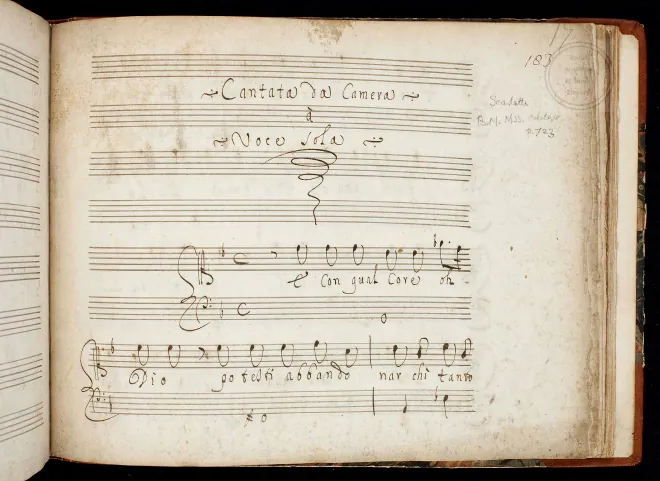 183
Cantata da Camera
à
Voce Sola
Scarlatti
B.M. MSS.
p. 723
E Con qual Core oh
Dio po testi abbando nar chi tanto